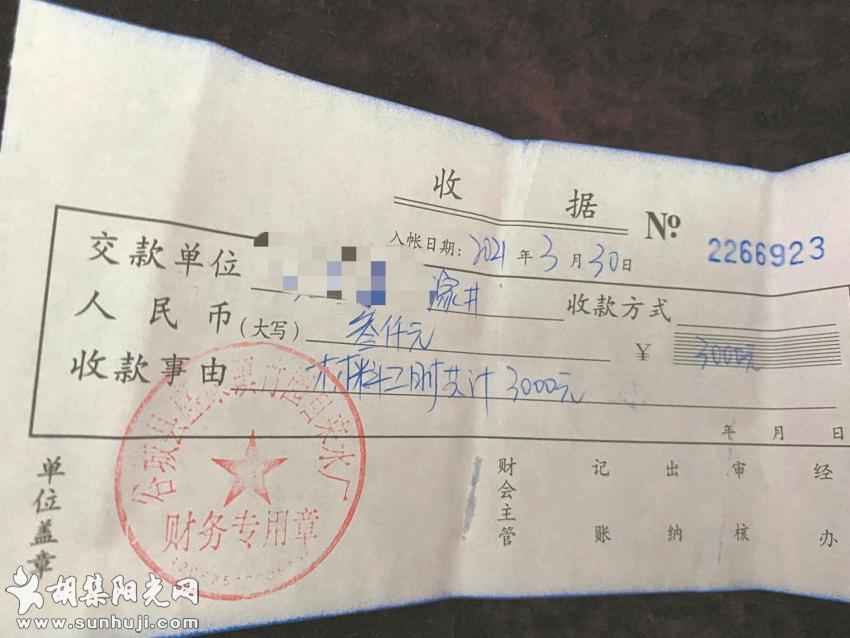 收 据 № 2266923
入帐日期：2021年3月30日
交款单位 收款方式
人民币（大写） 叁仟元 ￥ 3000元
收款事由 材料工时共计3000元
年 月 日
单位盖章 财会主管 记账 出纳 审核 经办
财务专用章
胡集阳光网
www.sunhuji.com